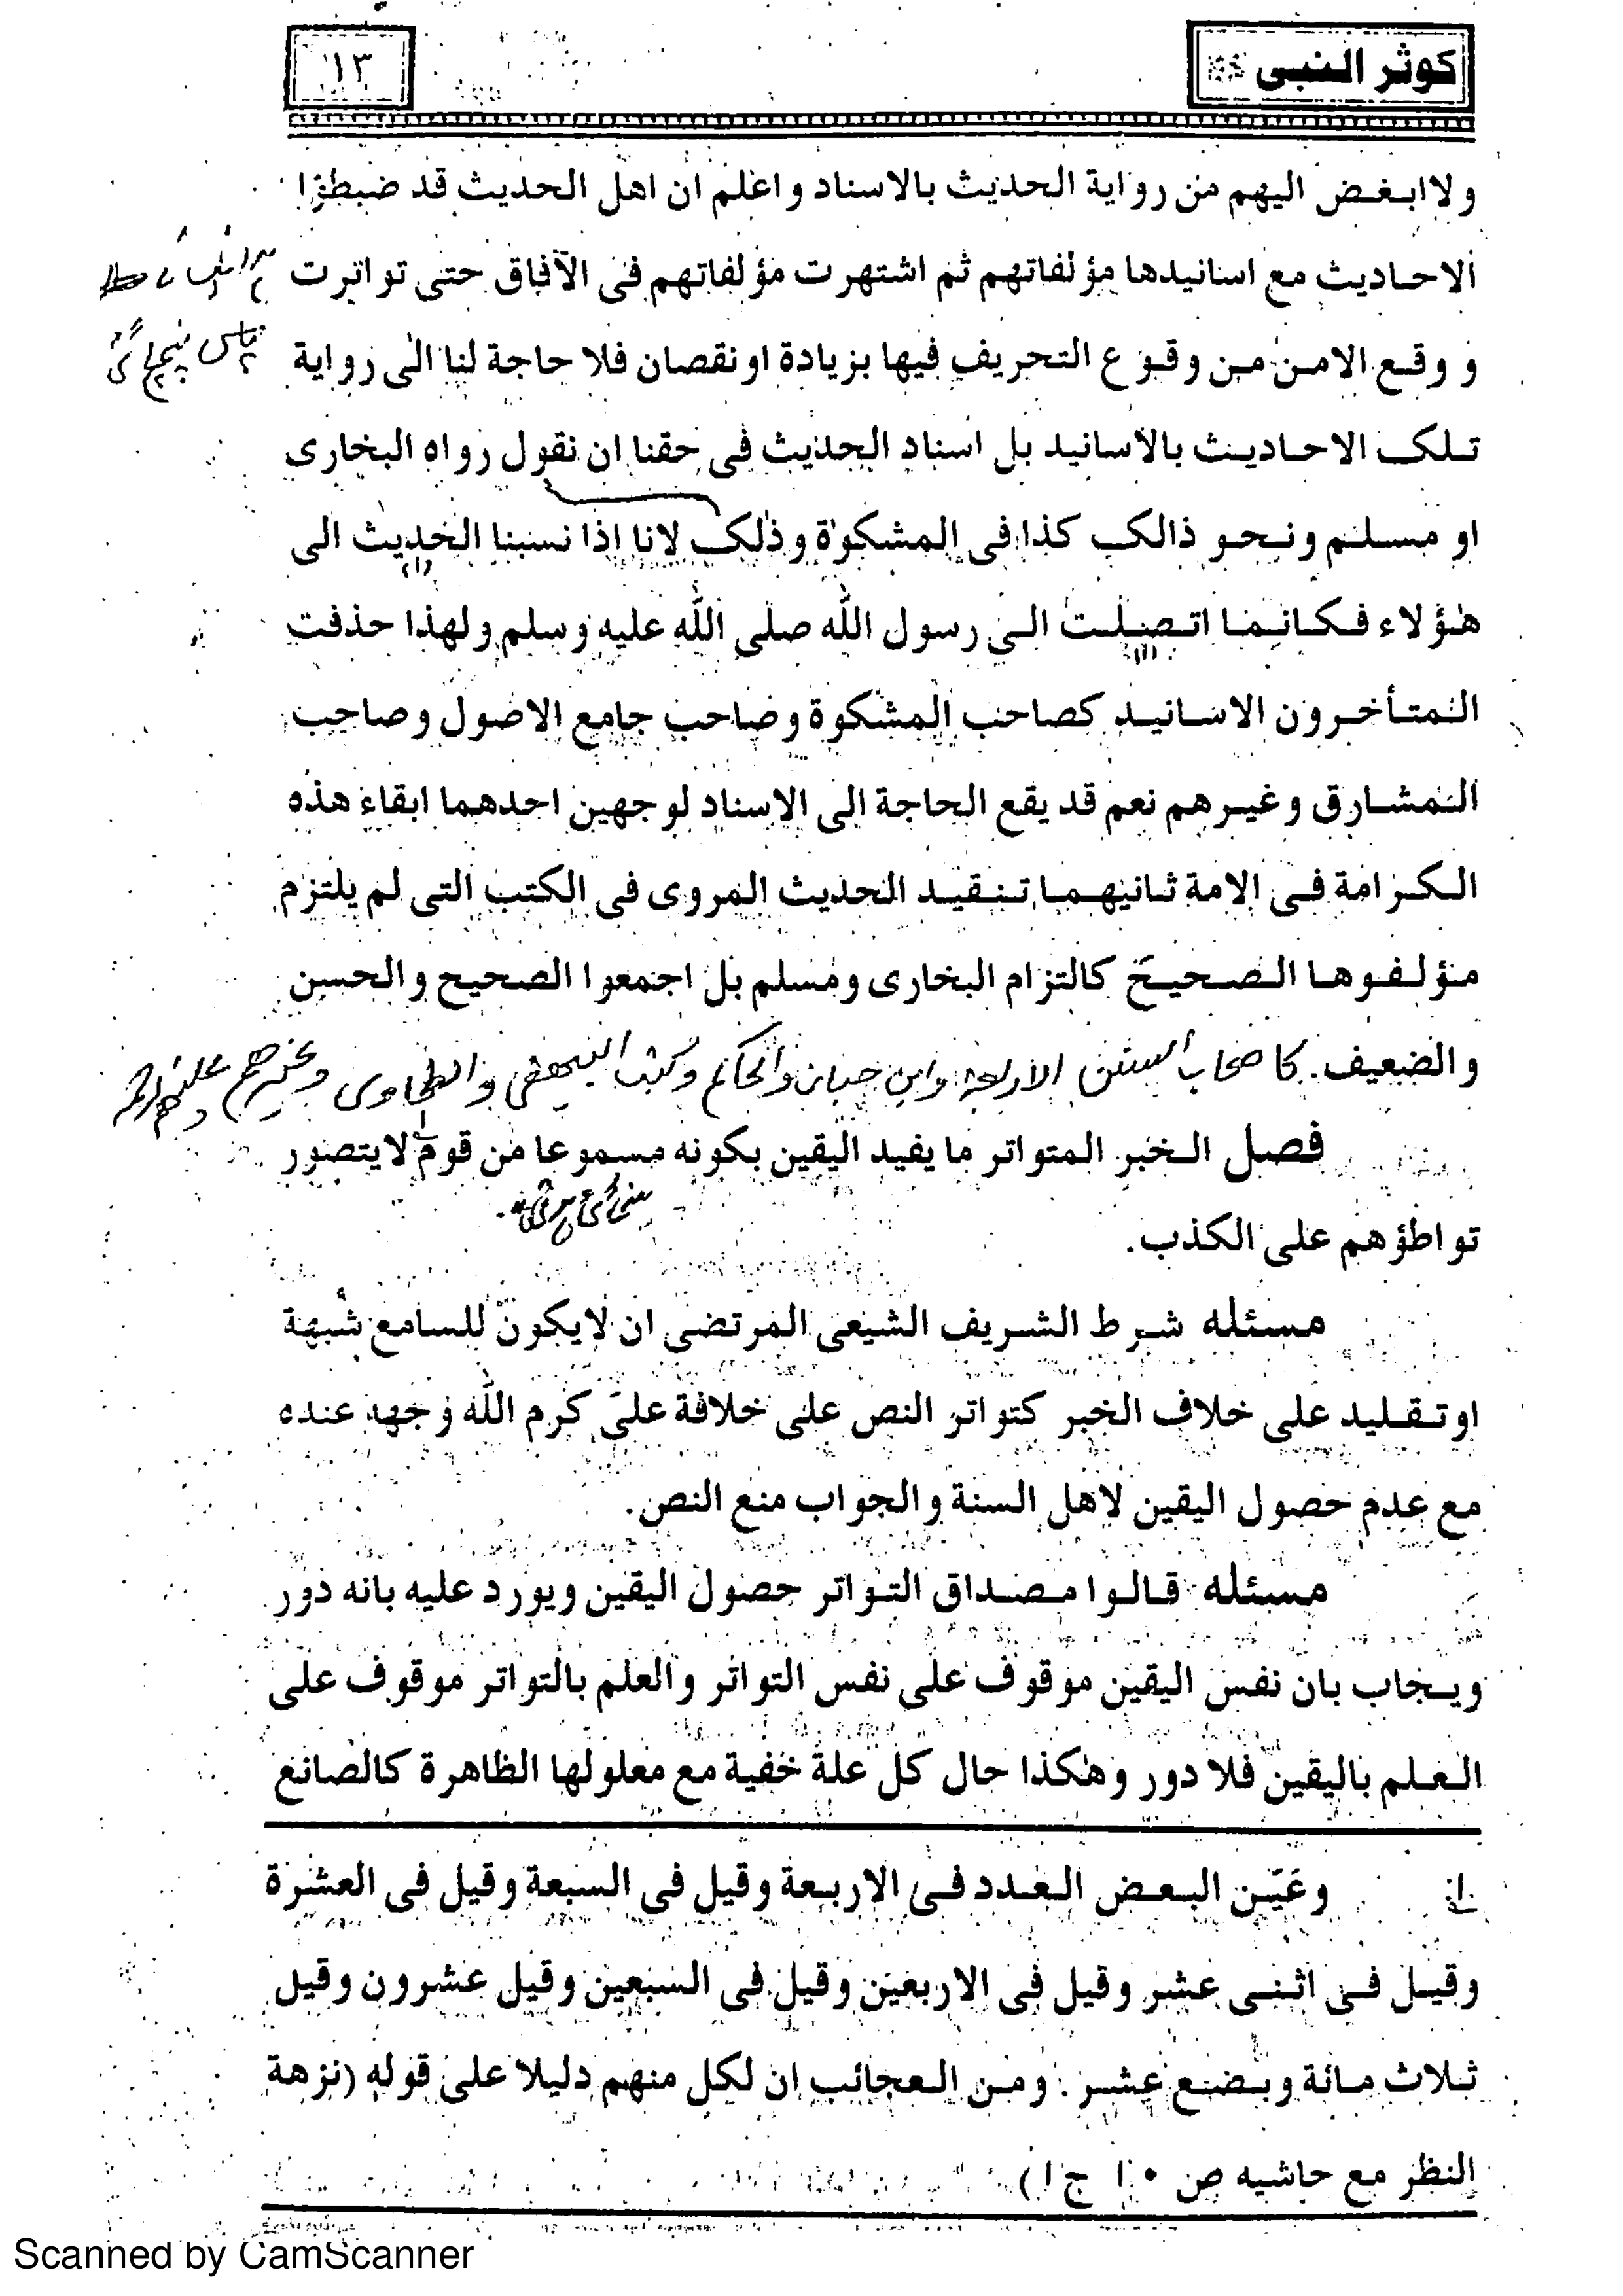 كوثر النبى
١٣
ولا ابغض اليهم من رواية الحديث بالاسناد واعلم ان اهل الحديث قد ضبطوا
الاحاديث مع اسانيدها مؤلفاتهم ثم اشتهرت مؤلفاتهم فى الآفاق حتى تواترت
و وقع الامن من وقوع التحريف فيها بزيادة او نقصان فلا حاجة لنا الى رواية
تلك الاحاديث بالاسانيد بل اسناد الحديث فى حقنا ان نقول رواه البخارى
او مسلم ونحو ذالك كذا فى المشكوٰة وذٰلك لانا اذا نسبنا الحديث الى
هٰؤلاء فكانما اتصلت الى رسول اللّٰه صلى اللّٰه عليه وسلم ولهذا حذفت
المتأخرون الاسانيد كصاحب المشكوة وصاحب جامع الاصول وصاحب
المشارق وغيرهم نعم قد يقع الحاجة الى الاسناد لوجهين احدهما ابقاء هذه
الكرامة فى الامة ثانيهما تنقيد الحديث المروى فى الكتب التى لم يلتزم
مؤلفوها الصحيح كالتزام البخارى ومسلم بل اجمعوا الصحيح والحسن
والضعيف. كاصحاب السنن الاربعة وابن حبان والحاكم وكتب البيهقى والطحاوى وغيرهم
فصل الخبر المتواتر ما يفيد اليقين بكونه مسموعا من قوم لا يتصور
تواطؤهم على الكذب.
مسئله شرط الشريف الشيعى المرتضى ان لا يكون للسامع شبهة
او تقليد على خلاف الخبر كتواتر النص على خلافة على كرم اللّٰه وجهه عنده
مع عدم حصول اليقين لاهل السنة والجواب منع النص.
مسئله قالوا مصداق التواتر حصول اليقين ويورد عليه بانه دور
ويجاب بان نفس اليقين موقوف على نفس التواتر والعلم بالتواتر موقوف على
العلم باليقين فلا دور وهٰكذا حال كل علة خفية مع معلولها الظاهرة كالصانع
ا؎ وعَيّن البعض العدد فى الاربعة وقيل فى السبعة وقيل فى العشرة
وقيل فى اثنى عشر وقيل فى الاربعين وقيل فى السبعين وقيل عشرون وقيل
ثلاث مائة وبضع عشر. ومن العجائب ان لكل منهم دليلا على قوله (نزهة
النظر مع حاشيه ص ١٠ ج ١)
Scanned by CamScanner